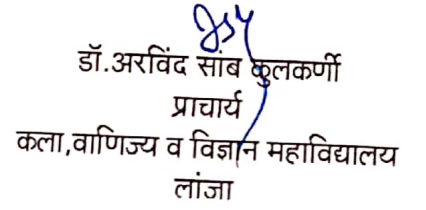 डॉ.अरविंद सांब कुलकर्णी
प्राचार्य
कला,वाणिज्य व विज्ञान महाविद्यालय
लांजा